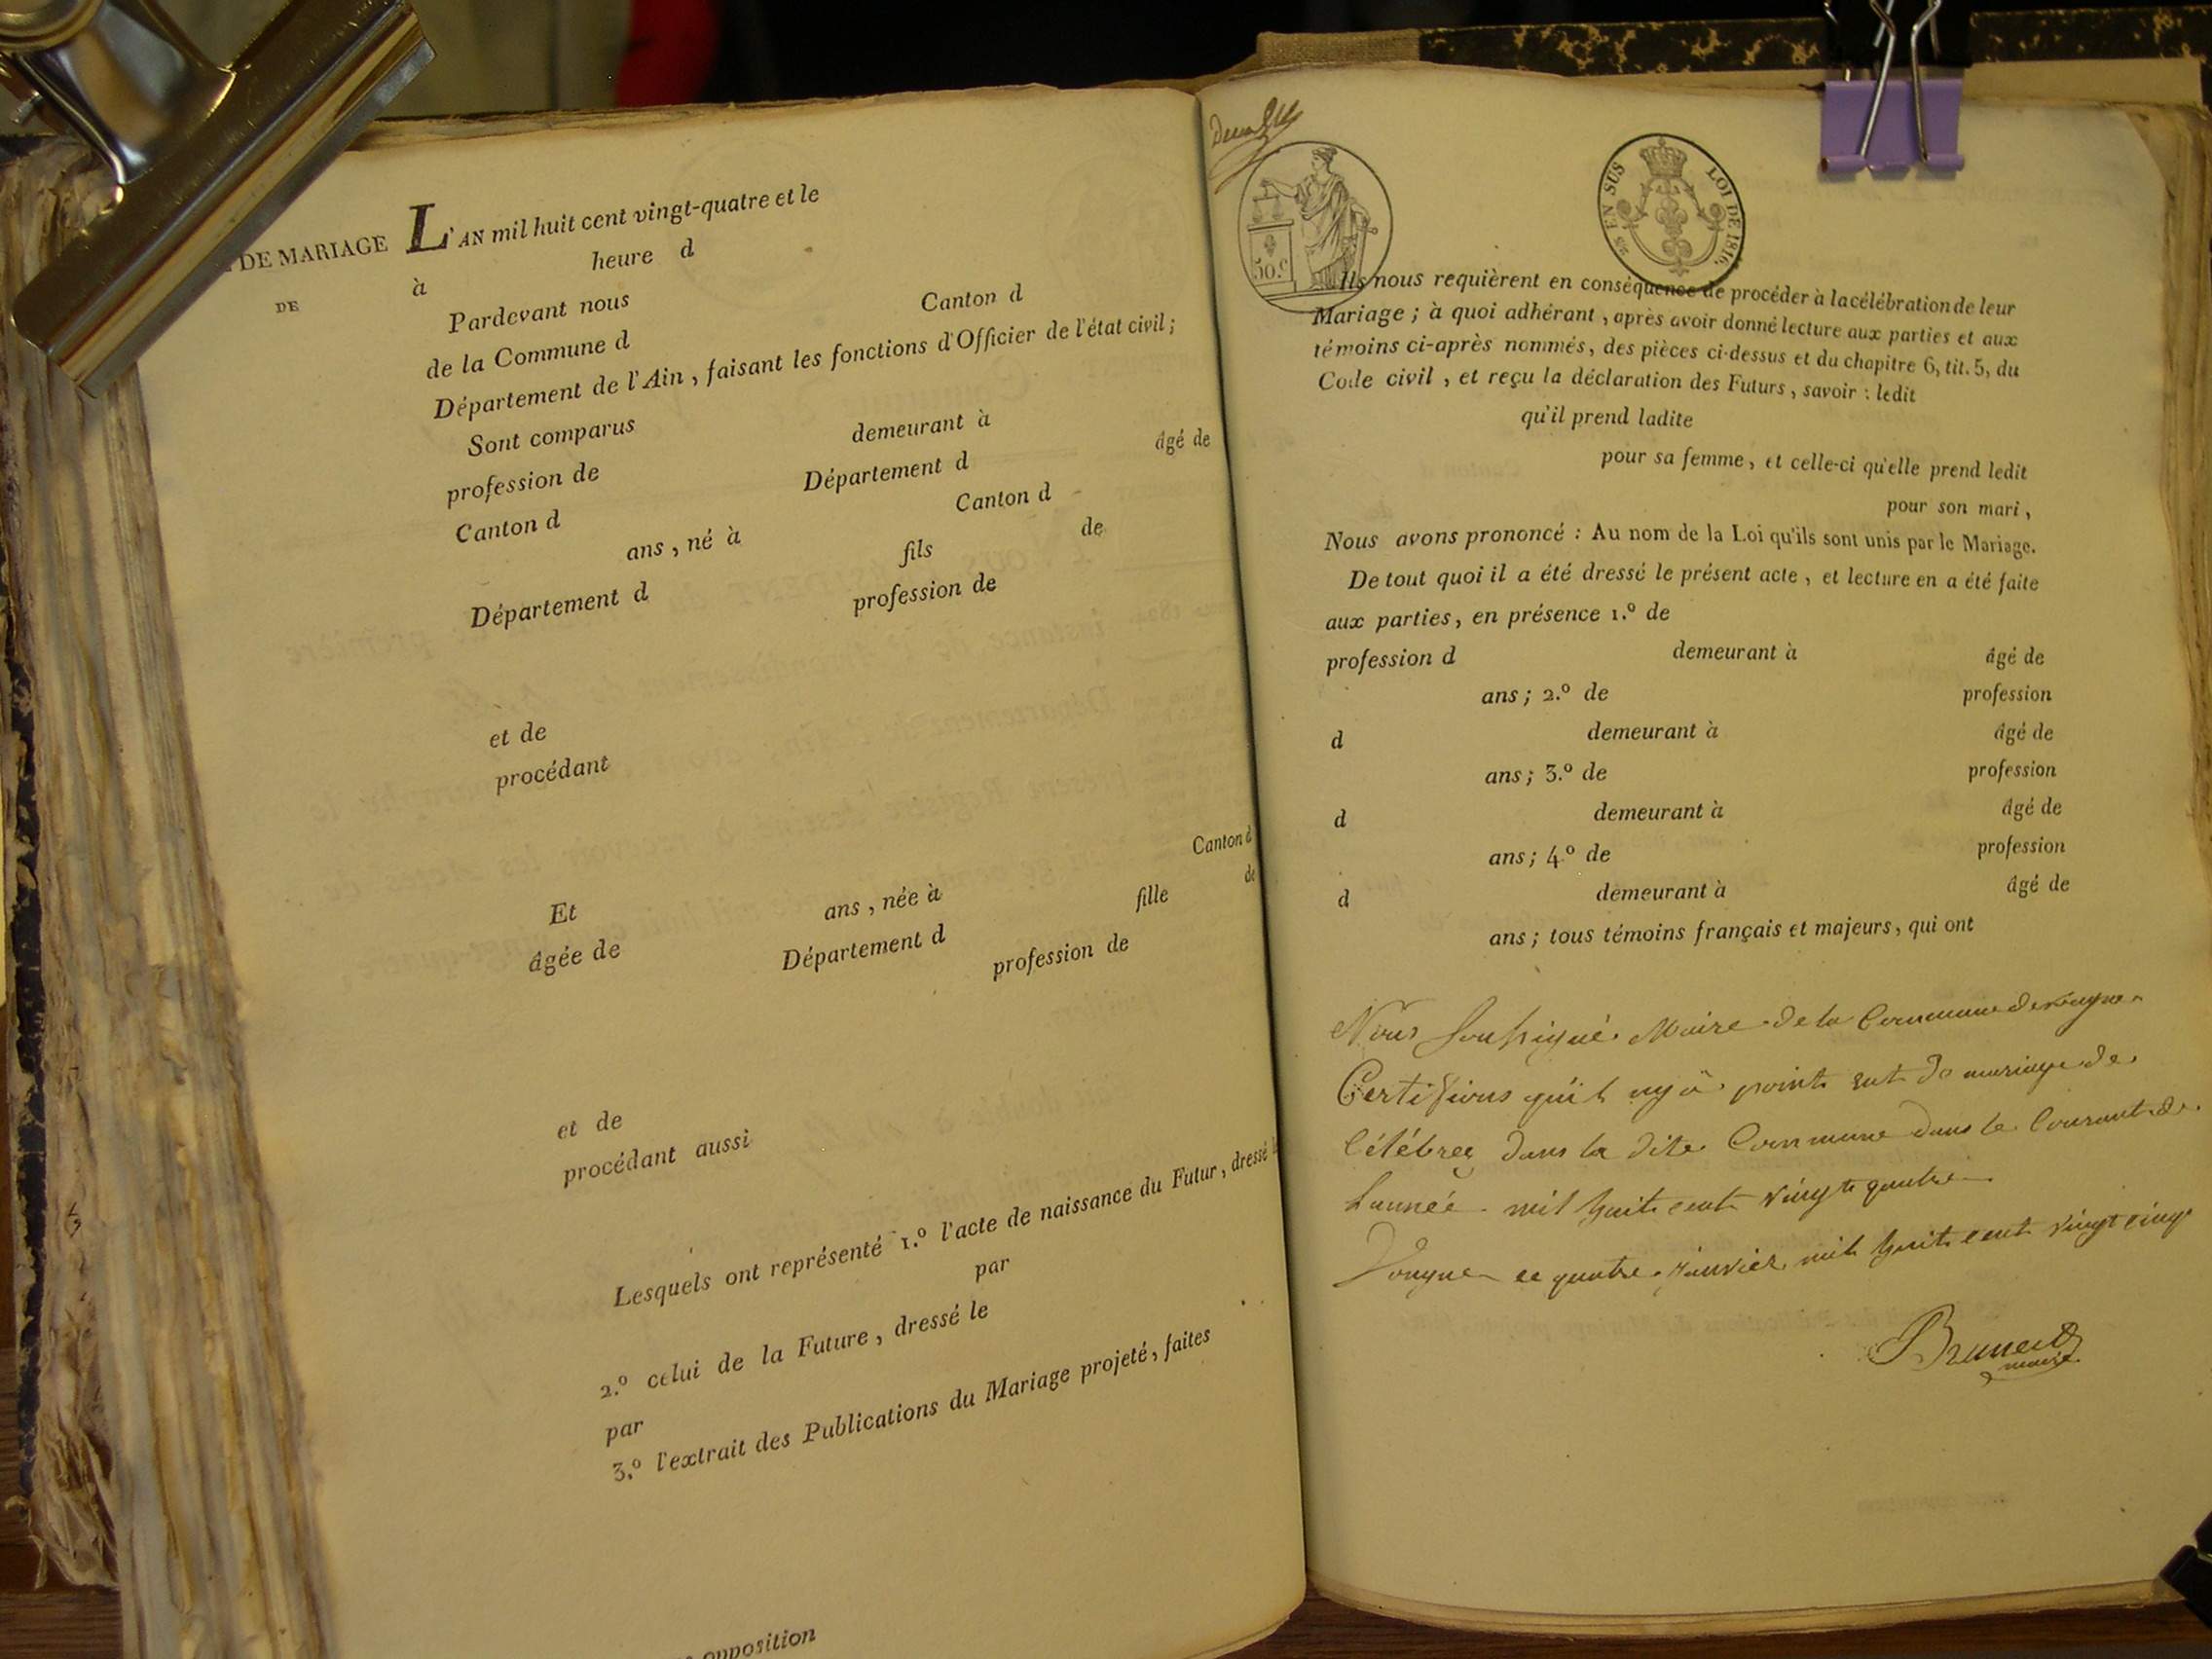 DE MARIAGE
DE
L'AN mil huit cent vingt-quatre et le
à heure d
Pardevant nous
de la Commune d Canton d
Département de l'Ain, faisant les fonctions d'Officier de l'état civil;
Sont comparus
profession de demeurant à
Canton d Département d âgé de
ans, né à Canton d
Département d fils de
profession de
et de
procédant
Et
âgée de ans, née à Canton d
Département d fille de
profession de
et de
procédant aussi
Lesquels ont représenté 1.º l'acte de naissance du Futur, dressé
par
2.º celui de la Future, dressé le
par
3.º l'extrait des Publications du Mariage projeté, faites
opposition
50.C
EN SUS LOI DE 1816.
Ils nous requièrent en conséquence de procéder à la célébration de leur
Mariage; à quoi adhérant, après avoir donné lecture aux parties et aux
témoins ci-après nommés, des pièces ci-dessus et du chapitre 6, tit. 5, du
Code civil, et reçu la déclaration des Futurs, savoir: ledit
qu'il prend ladite
pour sa femme, et celle-ci qu'elle prend ledit
pour son mari,
Nous avons prononcé: Au nom de la Loi qu'ils sont unis par le Mariage.
De tout quoi il a été dressé le présent acte, et lecture en a été faite
aux parties, en présence 1.º de
profession d demeurant à âgé de
ans; 2.º de profession
d demeurant à âgé de
ans; 3.º de profession
d demeurant à âgé de
ans; 4.º de profession
d demeurant à âgé de
ans; tous témoins français et majeurs, qui ont
Nous Soussigné Maire de la Commune de vougne
Certifions qu'il ny à point eut de mariage de
Célébreé dans la dite Commune dans le Courant de
Lannée mil huit cent vingt quatre
Vougne ce quatre janvier mil huit cent vingt cinq
Brunet
maire